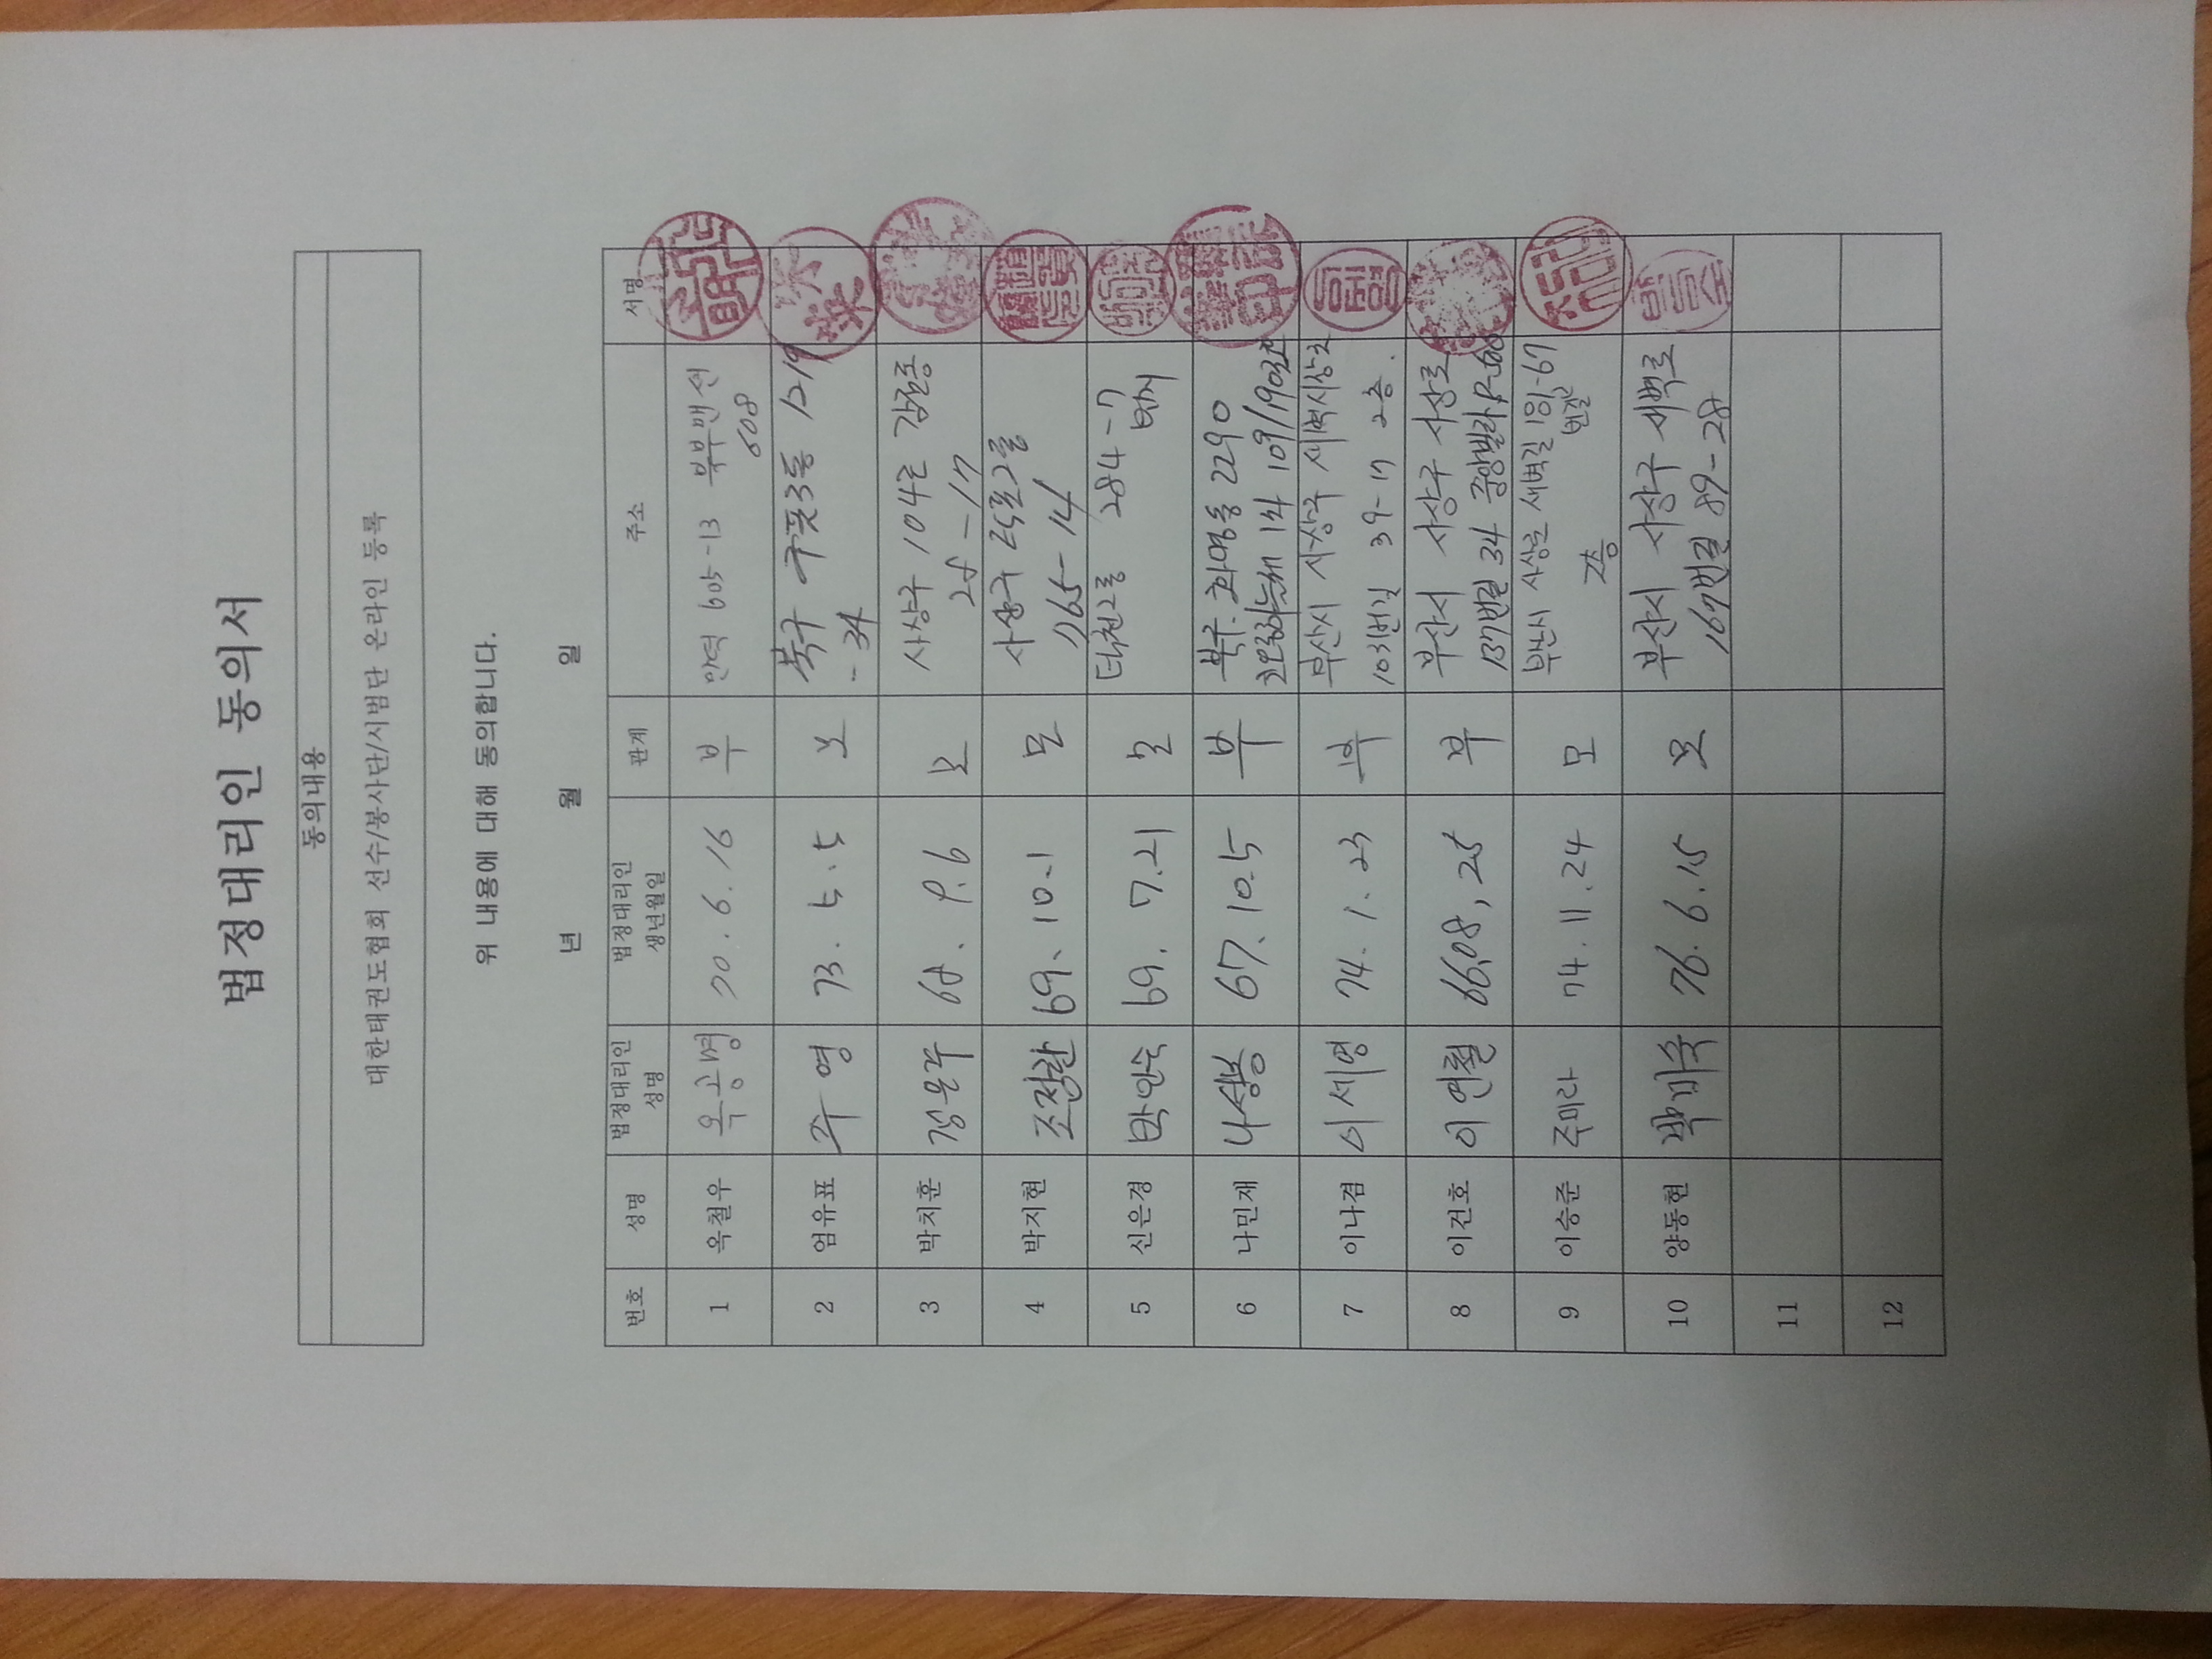 법정대리인 동의서
동의내용
대한태권도협회 선수/봉사단/시범단 온라인 등록
위 내용에 대해 동의합니다.
년 월 일
번호 성명 법정대리인 성명 법정대리인 생년월일 관계 주소 서명
1 옥철우 옥공명 70.6.16 부 605-13 부부맨션
608
2 엄유표 주영 73.5.5 모 북구 구포3동 1219
-34
3 박치훈 정은주 68.9.6 모 사상구 104로 감전동
28-17
4 박지현 조정란 69.10.1 모 사상구
765-14
5 신은경 박안숙 69.7.21 모 덕천2동 284-7
번지
6 나민재 나성봉 67.10.5 부 북구 화명동 2290
1차 109/1903호
7 이나겸 이세영 74.1.23 부 부산시 사상구 새벽시장로
103번길 39-17 2층.
8 이건호 이연철 66,08,25 부 부산시 사상구 사상로
137번길 34 중앙빌라
9 이승준 주미라 74.11.24 모 부산시 사상로 새벽길 -67
번길
2층
10 양동현 박미숙 76.6.15 모 부산시 사상구 새벽로
167번길 89-28
11
12